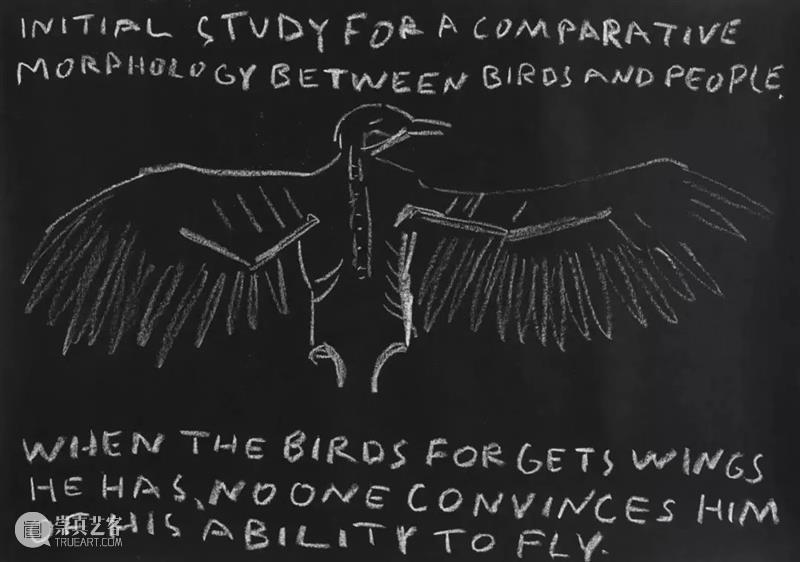 INITIAL STUDY FOR A COMPARATIVE
MORPHOLOGY BETWEEN BIRDS AND PEOPLE.
WHEN THE BIRDS FORGETS WINGS
HE HAS, NO ONE CONVINCES HIM
OF HIS ABILITY TO FLY.
崇真艺客
TRUEART.COM